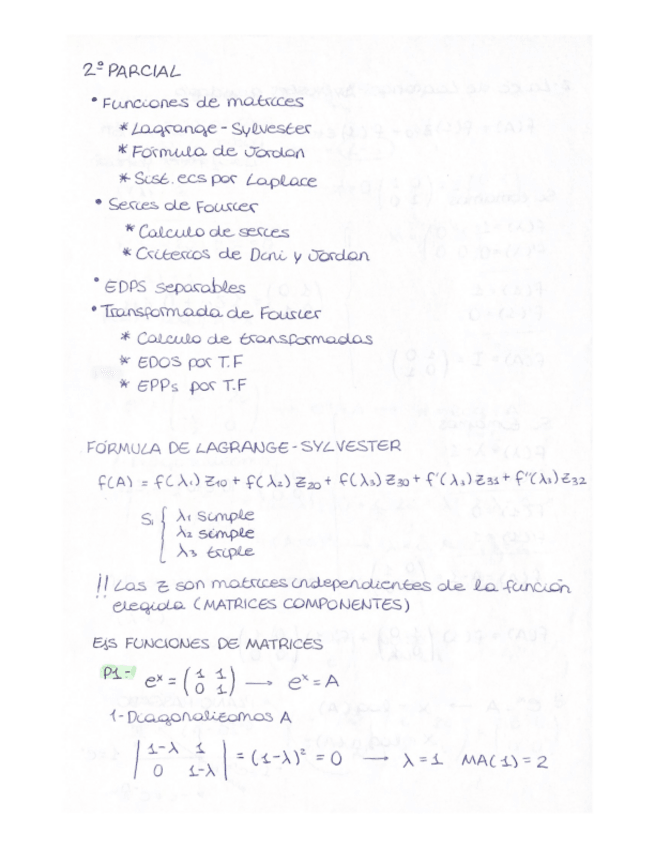 2º PARCIAL
• Funciones de matrices
* Lagrange-Sylvester
* Fórmula de Jordan
* Sist. ecs por Laplace
• Series de Fourier
* Calculo de series
* Criterios de Dini y Jordan
• EDPS separables
• Transformada de Fourier
* Calculo de transformadas
* EDOS por T.F
* EPPs por T.F
FÓRMULA DE LAGRANGE-SYLVESTER
f(A) = f(λ₁) Z₁₀ + f(λ₂) Z₂₀ + f(λ₃) Z₃₀ + f'(λ₃) Z₃₁ + f''(λ₃) Z₃₂
Si { λ₁ simple
λ₂ simple
λ₃ triple
!! Las Z son matrices independientes de la función
elegida (MATRICES COMPONENTES)
EJS FUNCIONES DE MATRICES
P1- eˣ = ( 1 1 ) → eˣ = A
( 0 1 )
1-Diagonalizamos A
| 1-λ 1 | = (1-λ)² = 0 → λ = 1 MA(1) = 2
| 0 1-λ |